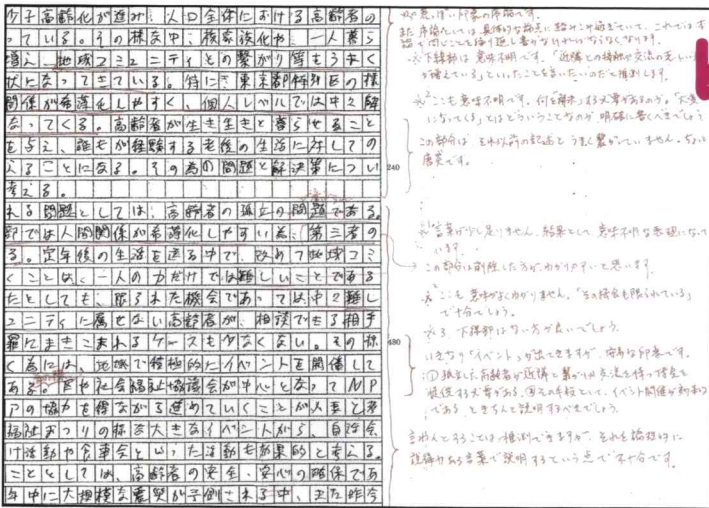 少子高齢化が進み、人口全体における高齢者の
っている。その様な中、核家族化や、一人暮ら
増え、地域コミュニティとの繋がり等もうすく
状になってきている。特に、東京都特別区の様
関係が希薄化しやすく、個人レベルでは中々解
なってくる。高齢者が生き生きと暮らせること
を与え、誰もが経験する老後の生活に対しての
えることになる。その為の問題と解決策につい
考える。
れる問題としては、高齢者の孤立の問題である。
部では人間関係が希薄化しやすい為、第三者の
る。定年後の生活を送る中で、改めて地域コミ
くことは、一人の力だけでは難しいことである
たとしても、限られた機会であっては中々難し
ュニティに属せない高齢者が、相談できる相手
罪にまきこまれるケースも少なくない。その様
く為には、地域で積極的にイベントを開催して
ある。区や社会福祉協議会が中心となってNP
アの協力を得ながら進めていくことが必要と考
福祉まつりの様な大きなイベントから、自治会
け活動や食事会といった活動も効果的と考える。
こととしては、高齢者の安全・安心の確保であ
年中に大規模な震災が予測される中、また昨今
240
480
※下線部は意味不明です。「近隣との接触や交流の乏しい
が増えている」といったことを言いたいのだと推測します。
※2 ここも意味不明です。何を「解決」する必要があるのか。「大変
になってくる」とはどういうことなのか明確に書くべきでしょう
この部分は それ以前の記述とうまく繋がっていません。ちょっと
唐突です。
※言葉が少し足りません。結果として意味不明な表現になって
います。
この部分は削除した方がわかりやすいと思います。
※2 ここも意味がよくわかりません。「その機会も限られている」
で十分でしょう。
※3 下線部はない方が良いでしょう。
いきなり「イベント」が出てきますが、安易な印象です。
①孤立した高齢者が近隣と繋がりや交流を持つ機会を
提供する必要がある。②その手段として、イベント開催が効果的
である、ときちんと説明するべきでしょう。
言わんとすることは推測できますが、それを論理的に
説得力ある言葉で説明するという点で不十分です。